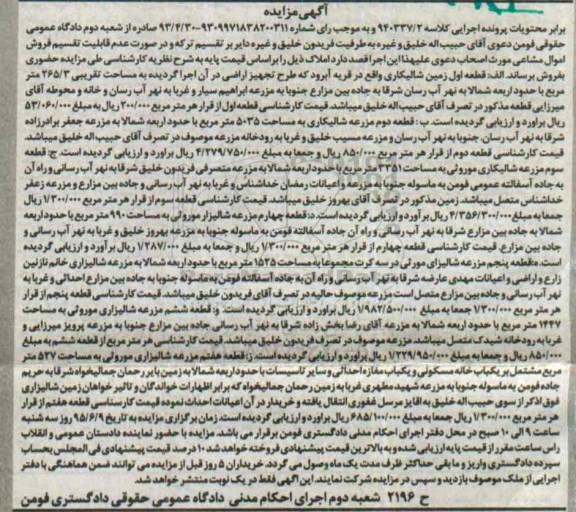 آگهی مزایده
برابر محتویات پرونده اجرایی کلاسه ۹۴۰۳۳۷/۲ و به موجب رای شماره ۹۳۰۹۹۷۱۸۳۸۲۰۰۳۱۱-۹۳/۴/۳۰ صادره از شعبه دوم دادگاه عمومی
حقوقی فومن دعوی آقای حبیب اله خلیق و غیره به طرفیت فریدون خلیق و غیره دایر بر تقسیم ترکه و در صورت عدم قابلیت تقسیم فروش
اموال مشاعی مورث اصحاب دعوی علیهذا این اجرا قصد دارد املاک ذیل را بر اساس قیمت پایه به شرح نظریه کارشناسی طی مزایده حضوری
بفروش برساند. الف: قطعه اول زمین شالیکاری واقع در قریه آبرود که طرح تجهیز اراضی در آن اجرا گردیده به مساحت تقریبی ۲۶۵/۳ متر
مربع با حدود اربعه شمالا به نهر آب رسان شرقا به جاده بین مزارع جنوبا به مزرعه ابراهیم سیار و غربا به نهر آب رسان و خانه و محوطه آقای
میرزایی قطعه مذکور در تصرف آقای حبیب اله خلیق میباشد. قیمت کارشناسی قطعه اول از قرار هر متر مربع ۲۰۰/۰۰۰ ریال به مبلغ ۵۳/۰۶۰/۰۰۰
ریال براورد و ارزیابی گردیده است. ب: قطعه دوم مزرعه شالیکاری به مساحت ۵۰۳۵ متر مربع با حدود اربعه شمالا به مزرعه جعفر برادرزاده
شرقا به نهر آب رسان، جنوبا به نهر آب رسان و مزرعه مسیب خلیق و غربا به رودخانه مزرعه موصوف در تصرف آقای حبیب اله خلیق میباشد.
قیمت کارشناسی قطعه دوم از قرار هر متر مربع ۸۵۰/۰۰۰ ریال و جمعا به مبلغ ۴/۲۷۹/۷۵۰/۰۰۰ ریال براورد و ارزیابی گردیده است. ج: قطعه
سوم مزرعه شالیکاری موروثی به مساحت ۳۳۵۱ متر مربع با حدود اربعه شمالا به مزرعه متصرفی فریدون خلیق شرقا به نهر آب رسانی و راه آن
به جاده آسفالته عمومی فومن به ماسوله جنوبا به مزرعه و اعیانات رمضان خداشناس و غربا به نهر آب رسانی و جاده بین مزارع و مزرعه زعفر
خداشناس متصل میباشد. زمین مذکور در تصرف آقای بهروز خلیق میباشد. قیمت کارشناسی قطعه سوم از قرار هر متر مربع ۱/۳۰۰/۰۰۰ ریال
جمعا به مبلغ ۴/۳۵۶/۳۰۰/۰۰۰ ریال برآورد و ارزیابی گردیده است. د: قطعه چهارم مزرعه شالیزار موروثی به مساحت ۹۹۰ متر مربع با حدود اربعه
شمالا به جاده بین مزارع شرقا به نهر آب رسانی و راه آن جاده آسفالته فومن به ماسوله جنوبا به مزرعه بهروز خلیق و غربا به نهر آب رسانی و
جاده بین مزارع. قیمت کارشناسی قطعه چهارم از قرار هر متر مربع ۱/۳۰۰/۰۰۰ ریال و جمعا به مبلغ ۱/۲۸۷/۰۰۰ ریال برآورد و ارزیابی گردیده
است. ه: قطعه پنجم مزرعه شالیزای مورثی در سه کرت مجموعا به مساحت ۱۵۲۵ متر مربع با حدود اربعه شمالا به مزرعه شالیزاری خانم نازنین
زارع و اراضی و اعیانات مهدی عارضه شرقا به نهر آب رسانی و راه آن به جاده آسفالته فومن به ماسوله جنوبا به جاده بین مزارع احداثی و غربا به
نهر آب رسانی و جاده بین مزارع متصل است مزرعه موصوف حالیه در تصرف آقای فریدون خلیق میباشد. قیمت کارشناسی قطعه پنجم از قرار
هر متر مربع ۱/۳۰۰/۰۰۰ ریال جمعا به مبلغ ۱/۹۸۲/۵۰۰/۰۰۰ ریال براورد و ارزیابی گردیده است. و: قطعه ششم مزرعه شالیزاری موروثی به مساحت
۱۴۴۷ متر مربع با حدود اربعه شمالا به مزرعه آقای رضا بخش زاده شرقا به نهر آب رسانی جاده بین مزارع جنوبا به مزرعه پرویز میرزایی و
غربا به رودخانه شیدک متصل میباشد. مزرعه موصوف در تصرف فریدون خلیق میباشد. قیمت کارشناسی هر متر مربع از قطعه ششم به مبلغ
۸۵۰/۰۰۰ ریال و جمعا به مبلغ ۱/۲۲۹/۹۵۰/۰۰۰ ریال براورد و ارزیابی گردیده است. ز: قطعه هفتم مزرعه شالیزاری موروثی به مساحت ۵۲۷ متر
مربع مشتمل بر یکباب خانه مسکونی و یکباب مغازه احداثی و سایر تاسیسات با حدود اربعه شمالا به زمین بایر رحمان جمالیخواه شرقا به حریم
جاده فومن به ماسوله جنوبا به مزرعه شهید مطهری غربا به زمین رحمان جمالیخواه که برابر اظهارات خواندگان و تائیر خواهان زمین شالیزاری
فوق الذکر از سوی حبیب اله خلیق به اقایژ مرسل غفوری انتقال یافته و خریدار در آن اعیانات احداث نموده قیمت کارشناسی قطعه هفتم از قرار
هر متر مربع ۱/۳۰۰/۰۰۰ ریال جمعا به مبلغ ۶۸۵/۱۰۰/۰۰۰ ریال براورد و ارزیابی گردیده است. زمان برگزاری مزایده به تاریخ ۹۵/۶/۹ روز سه شنبه
ساعت ۹ الی ۱۰ صبح در محل دفتر اجرای احکام مدنی دادگستری فومن برقرار می باشد. مزایده با حضور نماینده دادستان عمومی و انقلاب
راس ساعت مقرر از قیمت پایه ارزیابی شده و به بالاترین قیمت پیشنهادی فروخته خواهد شد ۱۰ درصد قیمت پیشنهادی فی المجلس بحساب
سپرده دادگستری واریز و ما بقی حداکثر ظرف مدت یک ماه وصول می گردد. خریداران ۵ روز قبل از مزایده می توانند ضمن هماهنگی با دفتر
اجرایی از ملک موصوف بازدید و سپس در مزایده شرکت نمایند. این آگهی فقط در یک نوبت منتشر خواهد شد.
ح ۲۱۹۶ شعبه دوم اجرای احکام مدنی دادگاه عمومی حقوقی دادگستری فومن